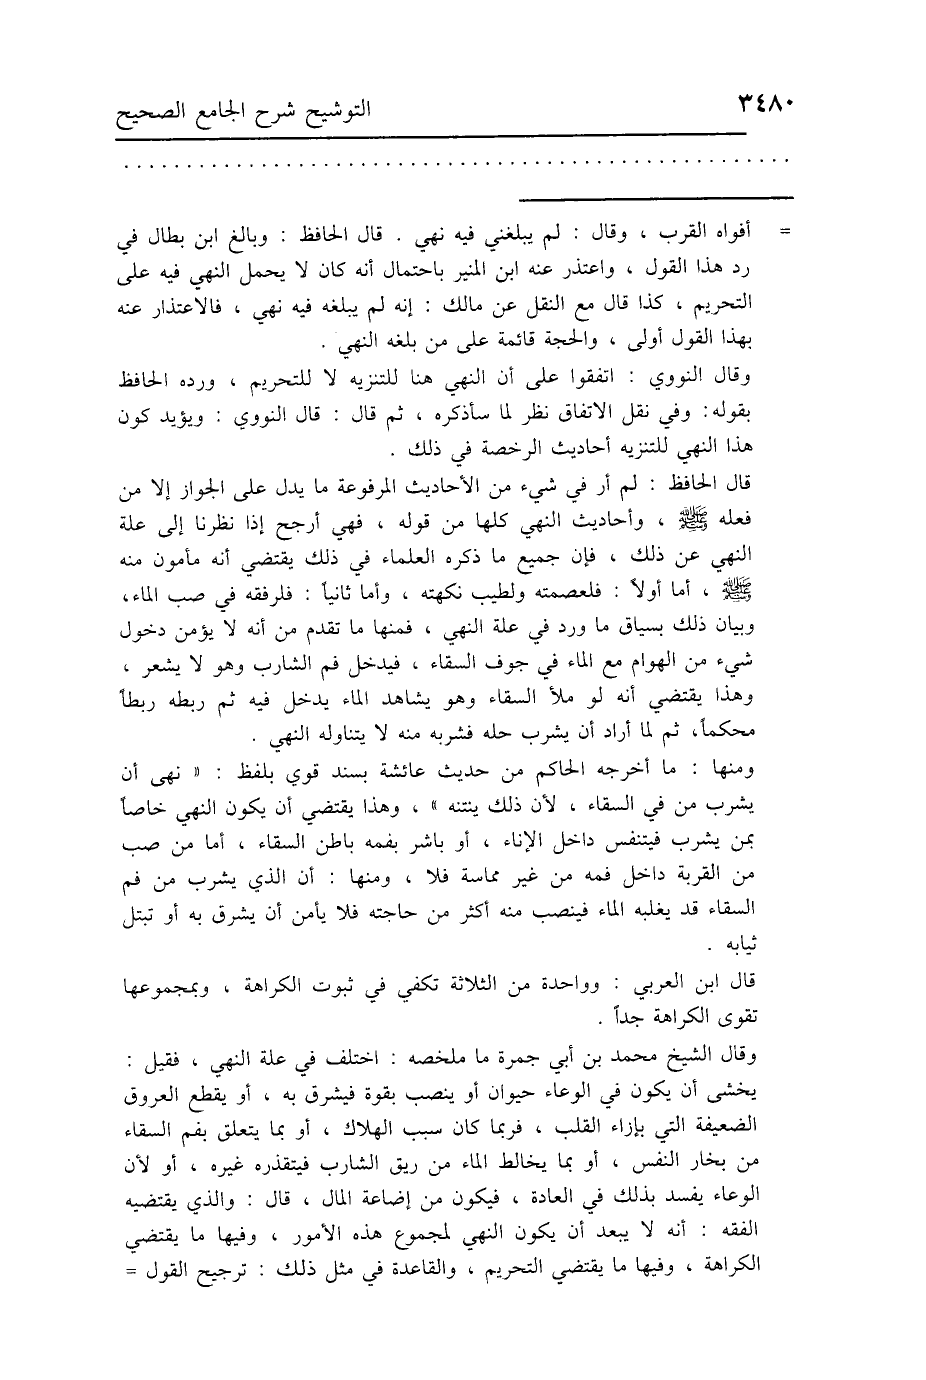 ٣٤٨٠ التوشيح شرح الجامع الصحيح
= أفواه القرب ، وقال : لم يبلغني فيه نهي . قال الحافظ : وبالغ ابن بطال في
رد هذا القول ، واعتذر عنه ابن المنير باحتمال أنه كان لا يحمل النهي فيه على
التحريم ، كذا قال مع النقل عن مالك : إنه لم يبلغه فيه نهي ، فالاعتذار عنه
بهذا القول أولى ، والحجة قائمة على من بلغه النهي .
وقال النووي : اتفقوا على أن النهي هنا للتنزيه لا للتحريم ، ورده الحافظ
بقوله: وفي نقل الاتفاق نظر لما سأذكره ، ثم قال : قال النووي : ويؤيد كون
هذا النهي للتنزيه أحاديث الرخصة في ذلك .
قال الحافظ : لم أر في شيء من الأحاديث المرفوعة ما يدل على الجواز إلا من
فعله ﷺ ، وأحاديث النهي كلها من قوله ، فهي أرجح إذا نظرنا إلى علة
النهي عن ذلك ، فإن جميع ما ذكره العلماء في ذلك يقتضي أنه مأمون منه
ﷺ ، أما أولاً : فلعصمته ولطيب نكهته ، وأما ثانياً : فلرفقه في صب الماء،
وبيان ذلك بسياق ما ورد في علة النهي ، فمنها ما تقدم من أنه لا يؤمن دخول
شيء من الهوام مع الماء في جوف السقاء ، فيدخل فم الشارب وهو لا يشعر ،
وهذا يقتضي أنه لو ملأ السقاء وهو يشاهد الماء يدخل فيه ثم ربطه ربطاً
محكماً، ثم لما أراد أن يشرب حله فشربه منه لا يتناوله النهي .
ومنها : ما أخرجه الحاكم من حديث عائشة بسند قوي بلفظ : « نهى أن
يشرب من في السقاء ، لأن ذلك ينتنه » ، وهذا يقتضي أن يكون النهي خاصاً
بمن يشرب فيتنفس داخل الإناء ، أو باشر بفمه باطن السقاء ، أما من صب
من القربة داخل فمه من غير مماسة فلا ، ومنها : أن الذي يشرب من فم
السقاء قد يغلبه الماء فينصب منه أكثر من حاجته فلا يأمن أن يشرق به أو تبتل
ثيابه .
قال ابن العربي : وواحدة من الثلاثة تكفي في ثبوت الكراهة ، وبمجموعها
تقوى الكراهة جداً .
وقال الشيخ محمد بن أبي جمرة ما ملخصه : اختلف في علة النهي ، فقيل :
يخشى أن يكون في الوعاء حيوان أو ينصب بقوة فيشرق به ، أو يقطع العروق
الضعيفة التي بإزاء القلب ، فربما كان سبب الهلاك ، أو بما يتعلق بفم السقاء
من بخار النفس ، أو بما يخالط الماء من ريق الشارب فيتقذره غيره ، أو لأن
الوعاء يفسد بذلك في العادة ، فيكون من إضاعة المال ، قال : والذي يقتضيه
الفقه : أنه لا يبعد أن يكون النهي لمجموع هذه الأمور ، وفيها ما يقتضي
الكراهة ، وفيها ما يقتضي التحريم ، والقاعدة في مثل ذلك : ترجيح القول =